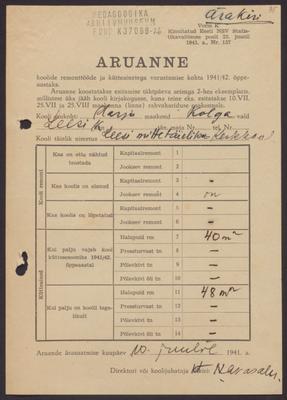 PEDAGOOGIKA
ARHIIVMUUSEUM
FOND K37068
Ärakiri
Vorm K
Kinnitatud Eesti NSV Statis-
tikavalitsuse poolt 25. juunil
1941. a., Nr. 157
ARUANNE
koolide remonttööde ja küttesainetega varustamise kohta 1941/42. õppe-
aastaks.
Aruanne koostatakse esitamise tähtpäeva seisuga 2-hes eksemplaris,
millistest üks jääb kooli kirjakogusse, kuna teine eks. esitatakse 10.VII,
25.VII ja 29.VIII maakonna (linna) rahvahariduse osakonnale.
Kooli asukoht: Harju maakond Kolga vald
Leesi k. tän. maja Nr. tel. Nr.
Kooli täielik nimetus Leesi mittetäielik Keskkool
Kooli remont
Kas on ette nähtud teostada
Kapitaalremont 1 -
Jooksev remont 2 -
Kas koolis on alanud
Kapitaalremont 3 -
Jooksev remont 4 on
Kas koolis on lõpetatud
Kapitaalremont 5 -
Jooksev remont 6 -
Kütteained
Kui palju vajab kool kütteseemoniks 1941/42. õppeaastal
Halupuid rm 7 40 m²
Pressturvast tn 8 -
Põlevkivi tn 9 -
Põlevkivi õli tn 10 -
Kui palju on koolil tegelikult
Halupuid rm 11 48 m²
Pressturvast tn 12 -
Põlevkivi tn 13 -
Põlevkivi õli tn 14 -
Aruande äraasaatmise kuupäev 10. juulil 1941. a.
Direktori või koolijuhataja